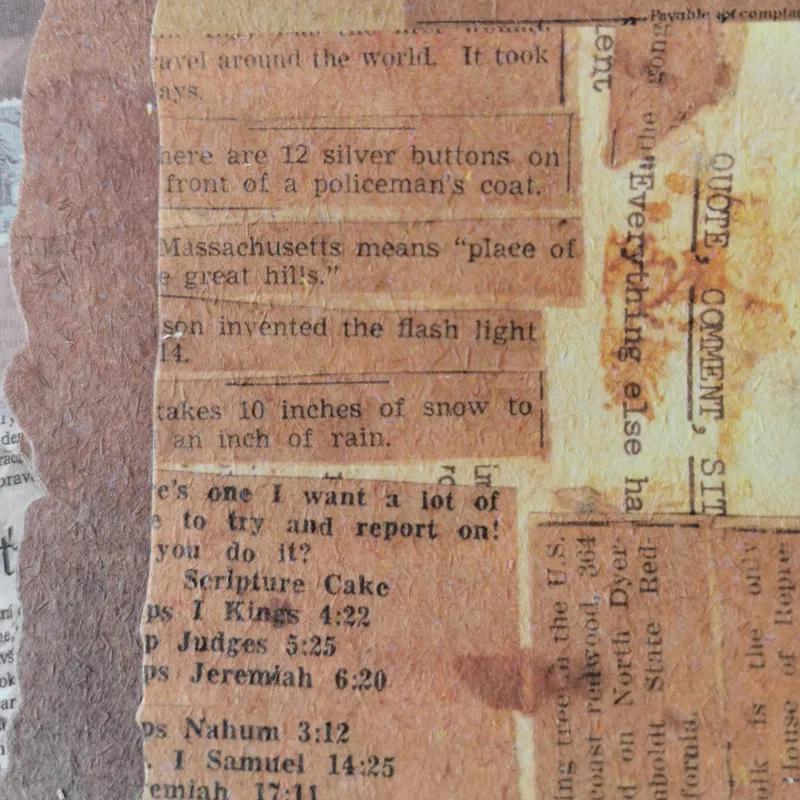 Payable at
avel around the world. It took
ays.
here are 12 silver buttons on
front of a policeman's coat.
Massachusetts means “place of
e great hills.”
son invented the flash light
14.
takes 10 inches of snow to
an inch of rain.
e's one I want a lot of
e to try and report on!
you do it?
Scripture Cake
ps I Kings 4:22
p Judges 5:25
ps Jeremiah 6:20
ps Nahum 3:12
. I Samuel 14:25
emiah 17:11
ent
the gong
"Everything else ha
QUOTE, COMMENT, SIT
ing tree in the U.S.
coast redwood, 364
d on North Dyer-
boldt State Red-
fornia.
olk is the only
House of Repre